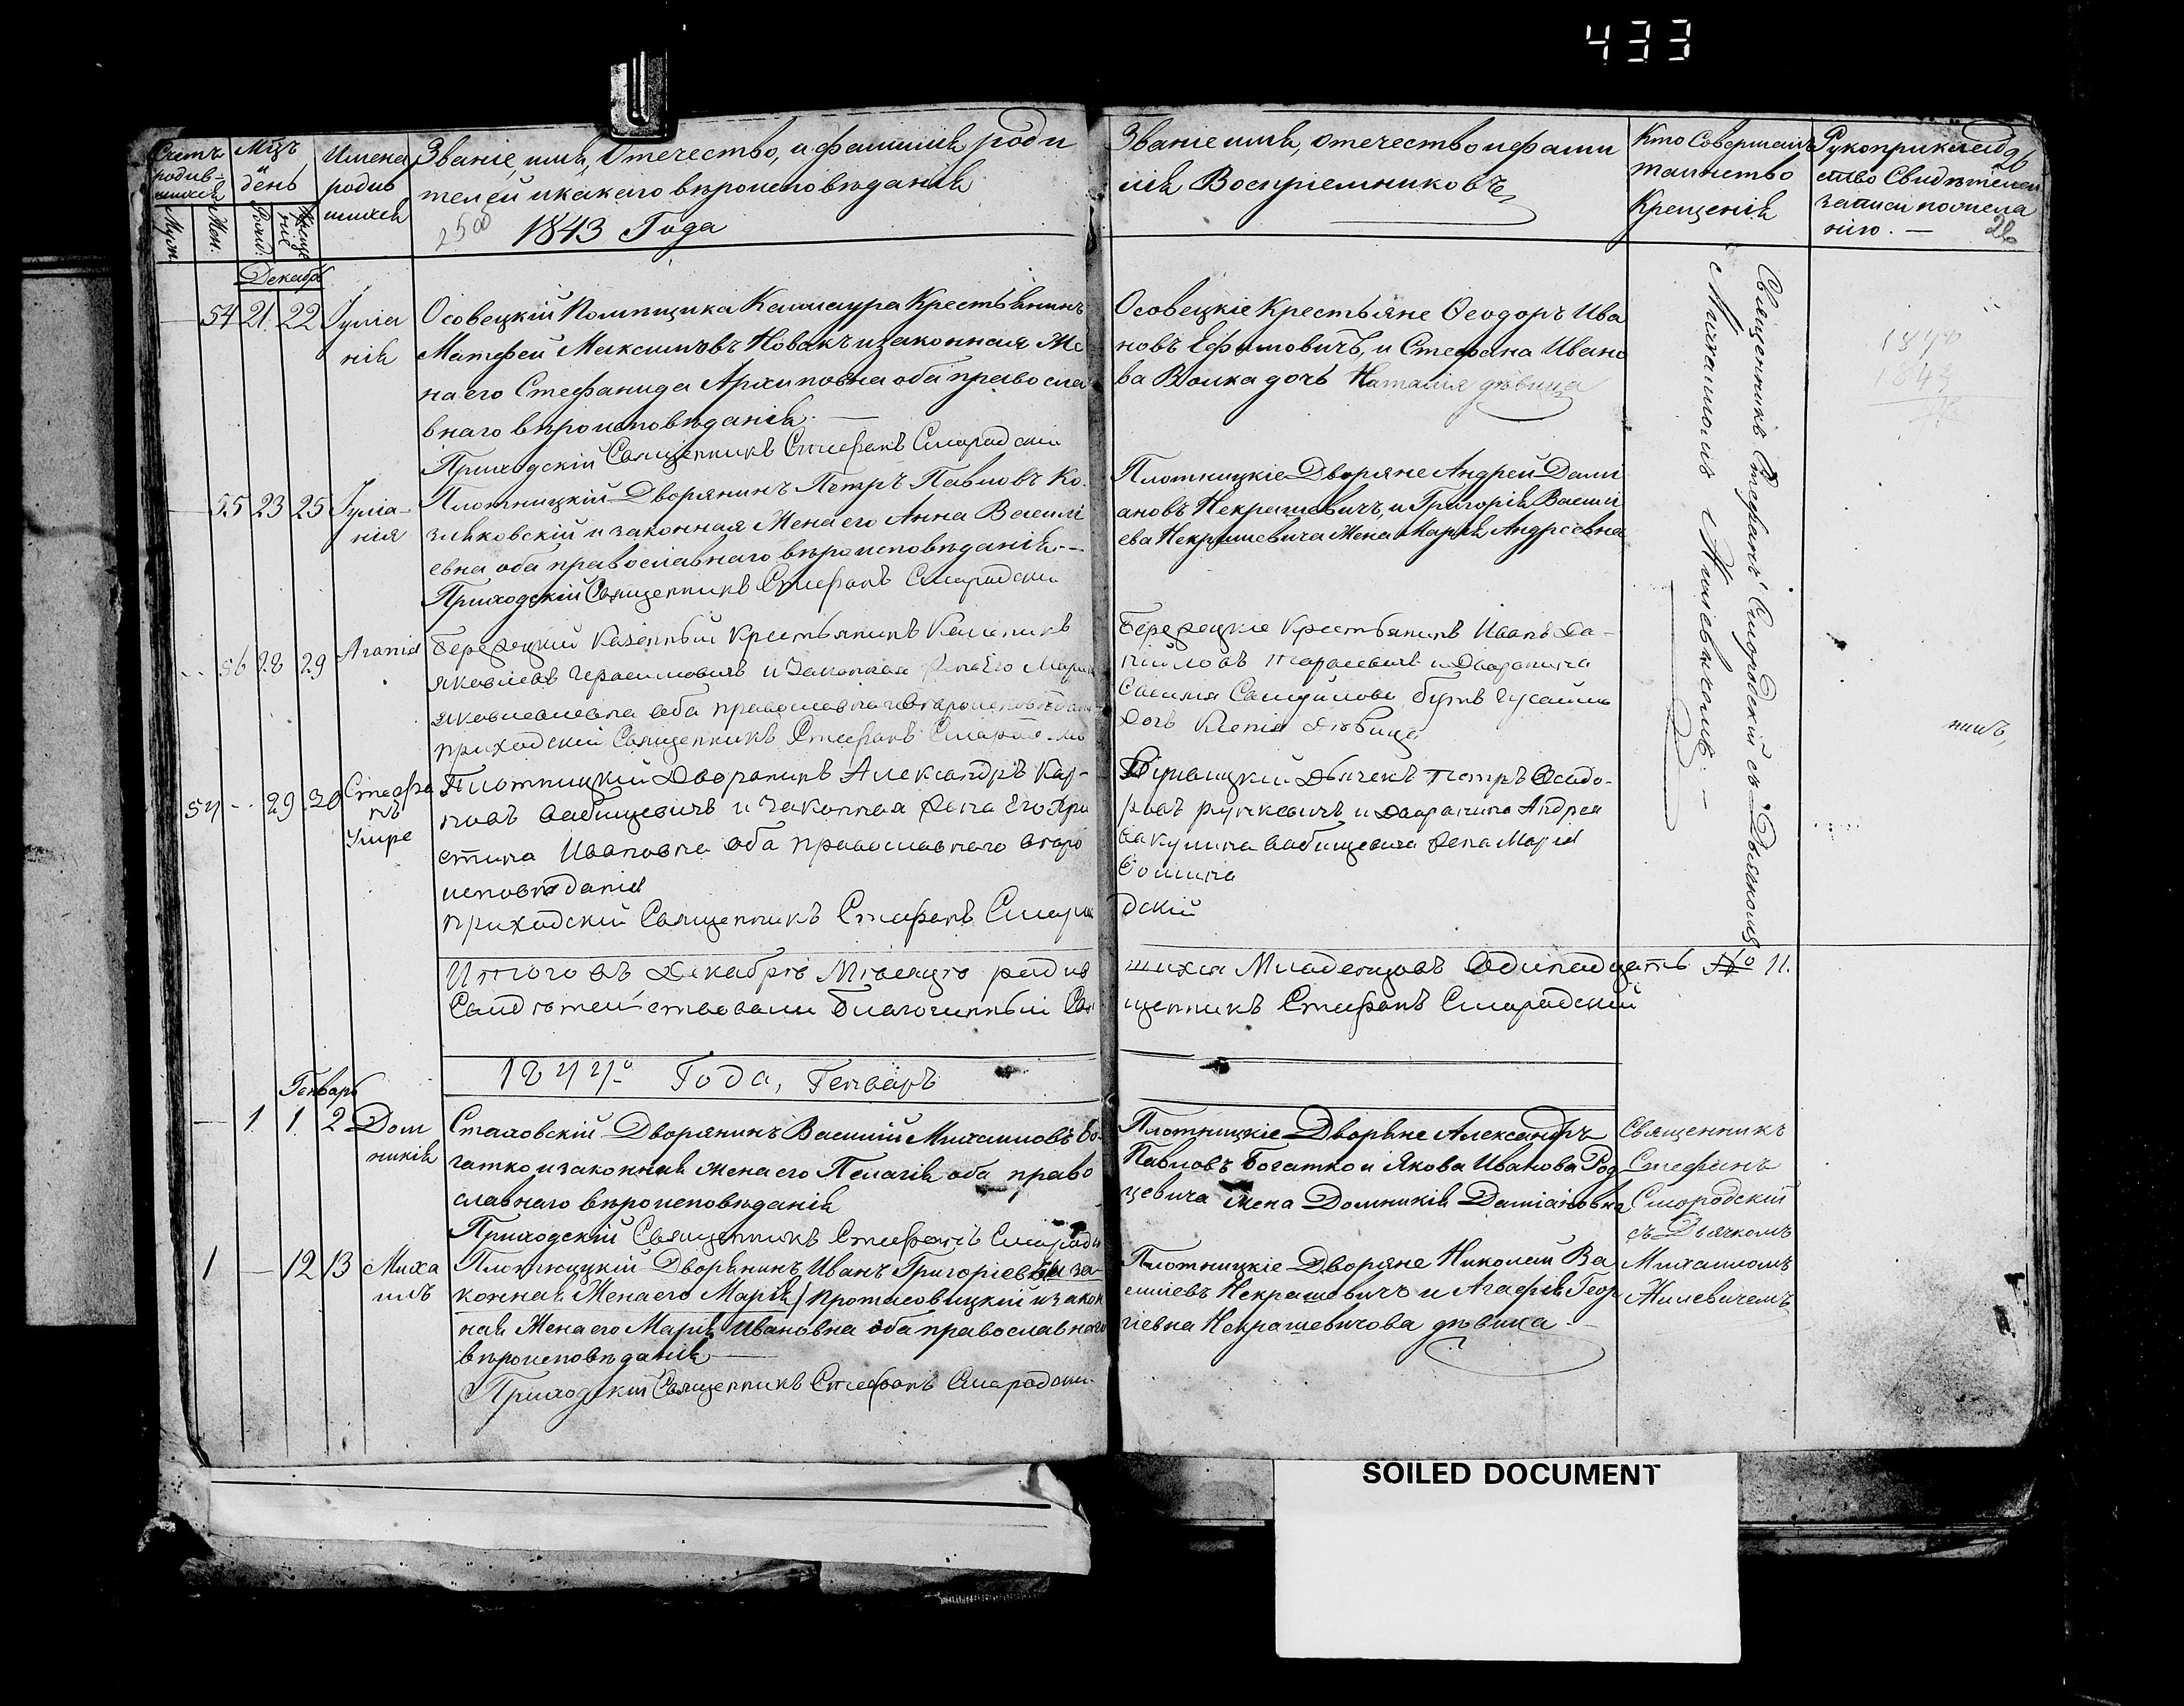 433
Счетъ родив-шихся
Муж.
Жен.
Мцъ и день
Рожд.
Креще-ние
Имена родив шихся
Званіе, имя, Отечество, и фамилія роди
телей и какого вѣроисповѣданія
2500
1843 Года
Званіе имя, отечество и фами
лія Воспріемниковъ
Кто Совершалъ
таинство
Крещенія
Рукоприклад
ство Свидѣтелей
записи по жела
нію. —
Декабрь
54 21. 22 Іуліа
нія
Осовецкій Помѣщика Крестьянинъ
Матфей Максимовъ Новакъ и законная Же
на его Стефанида Архиповна оба правосла
внаго вѣроисповѣданія. —
Приходскій Священникъ Стефанъ Смородскій
Осовецкіе Крестьяне Ѳеодоръ Ива
новъ Ефимовичъ, и Стефана Ивано
ва Волка дочь Наталія дѣвица
Священникъ Стефанъ Смородскій съ Дьячкомъ
Михаиломъ Жилевичемъ. —
1844
1843
55 23 25 Іуліа-
нія
Плотницкій Дворянинъ Петръ Павловъ Ко-
зляковскій и законная Жена его Анна Васили
евна оба православнаго вѣроисповѣданія. —
Приходскій Священникъ Стефанъ Смородскій
Плотницкіе Дворяне Андрей Дами
ановъ Некрашевичъ, и Григорія Васил
ева Некрашевича Жена Марія Андреевна
56 28 29 Аганія
Бережецкій Казенный Крестьянинъ
Яковлевъ Герасимовичъ и Законная Жена Его Марія
Яковлевна оба православнаго вѣроисповѣданія
приходскій Священникъ Стефанъ Смородскій
Бережецкіе Крестьянинъ Иванъ Да-
ниловъ и Дворянина
Самуйлова
дочь дѣвица
нилъ,
54 — 29 30 Стефа
нъ
Умре
Плотницкій Дворянинъ Александръ Кар-
повъ Вабищевичъ и Законная Жена Его Хри
стина Ивановна оба православнаго вѣро
исповѣданія
приходскій Священникъ Стефанъ Смородскій
Дьячекъ Петръ Ѳеодо-
ровъ и Дворянина Андрея
Вакулина Вабищевича Жена Марія
Ѳомина
Итого въ Декабрѣ Мѣсяцѣ родив шихся Младенцовъ Одинадцать 11.
Свидѣтельствовалъ Благочинный Священникъ Стефанъ Смородскій
1844го Года, Генваръ
Генваръ
— 1 1 2 Дом
никія
Стаховскій Дворянинъ Василій Михаиловъ Бо-
гатко и законная жена его Пелагія оба право
славнаго вѣроисповѣданія
Приходскій Священникъ Стефанъ Смородскій
Плотницкіе Дворяне Александръ
Павловъ Богатко и Якова Иванова Род
цевича жена Домникія Даміановна
Священникъ
Стефанъ
Смородскій
съ Дьячкомъ
Михаиломъ
Жилевичемъ
1 — 12 13 Миха
илъ
Плотницкій Дворянинъ Иванъ Григоріевъ и за-
конная Жена его Марія / Протасовицкій и закон
ная Жена его Марія Ивановна оба православнаго
вѣроисповѣданія —
Приходскій Священникъ Стефанъ Смородскій
Плотницкіе Дворяне Николай Ва
силіевъ Некрашевичъ и Агафія Геор
гіевна Некрашевичова дѣвица
SOILED DOCUMENT